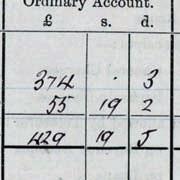 Ordinary Account.
£ s. d.
374 . 3
55 19 2
429 19 5